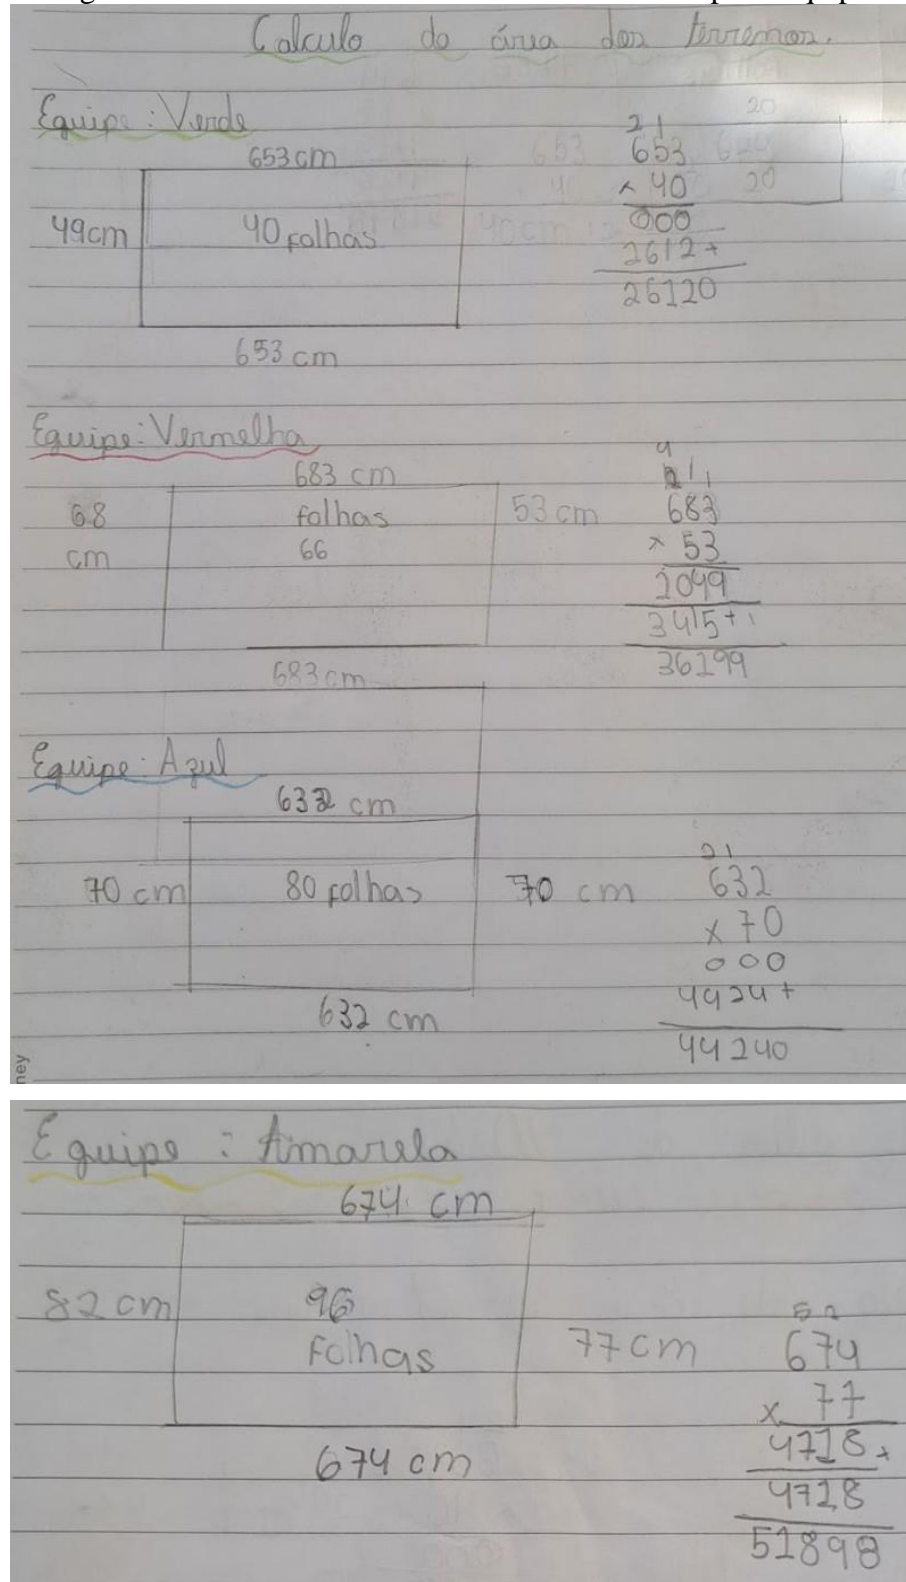 Calculo da área dos terrenos.
Equipe: Verde
653 cm
49cm
40 folhas
653 cm
21
653
× 40
000
2612+
26120
Equipe: Vermelha
683 cm
68
cm
folhas
66
53 cm
683 cm
4
211
683
× 53
2049
3415+
36199
Equipe: Azul
632 cm
70 cm
80 folhas
70 cm
632 cm
21
632
x 70
000
4424+
44240
ney
Equipe: Amarela
674 cm
82 cm
96
folhas
77 cm
674 cm
52
674
x 77
4718+
4718
51898